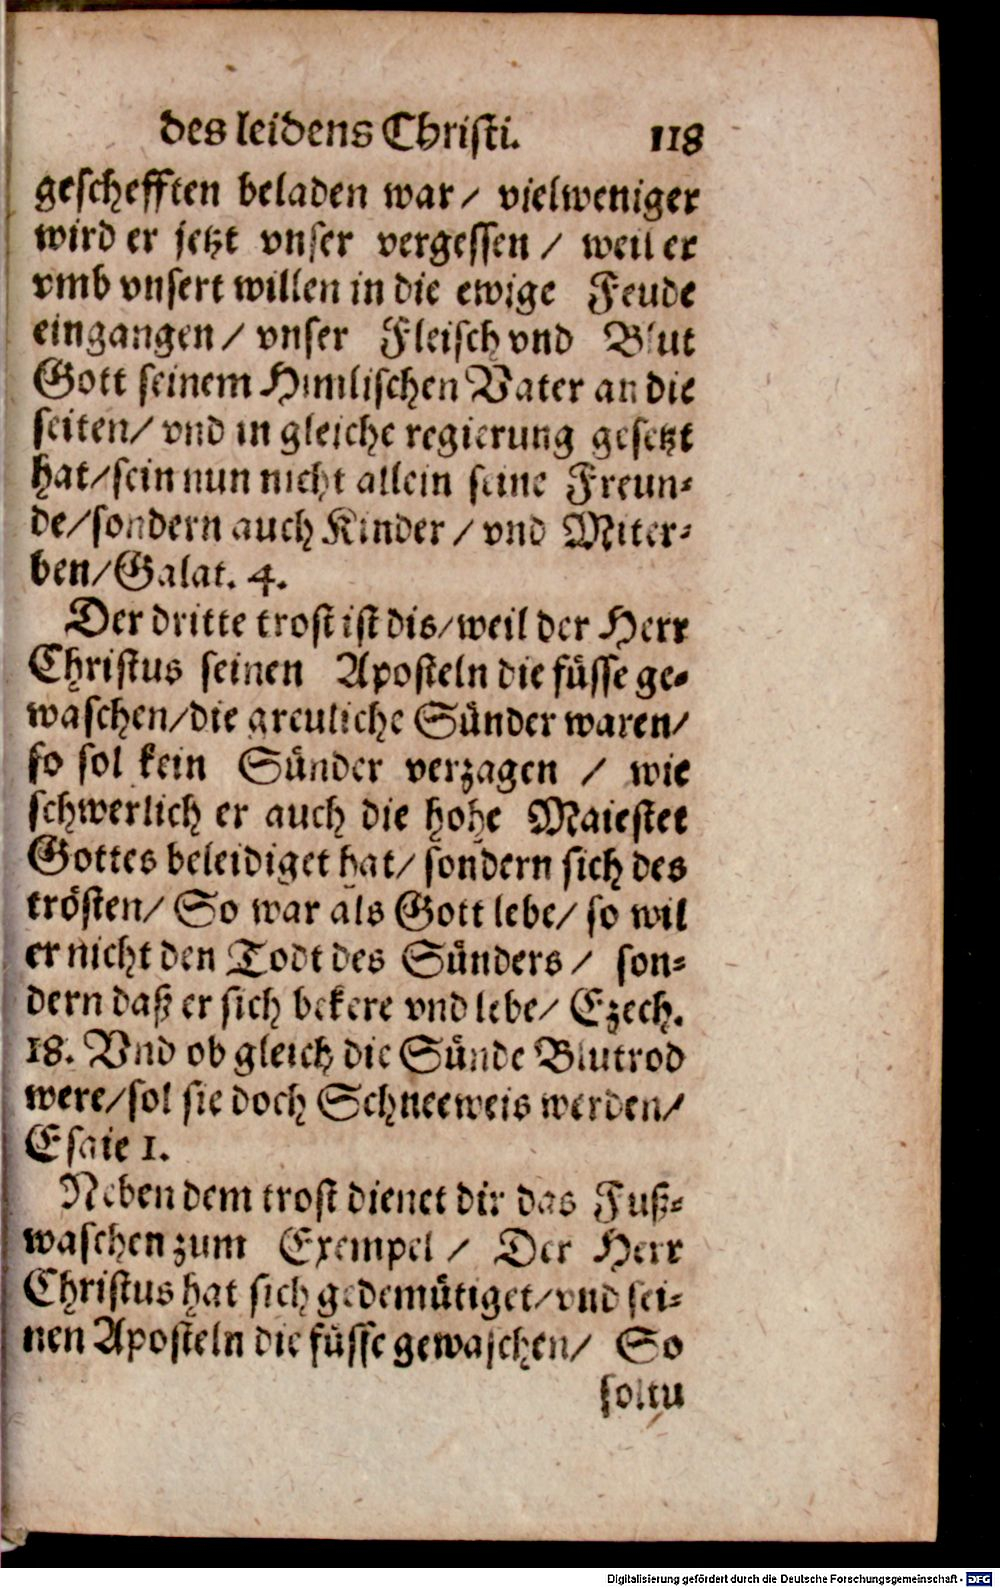 des leidens Christi. 118
geschefften beladen war / vielweniger
wird er jetzt vnser vergessen / weil er
vmb vnsert willen in die ewige Feude
eingangen / vnser Fleisch vnd Blut
Gott seinem Himlischen Vater an die
seiten / vnd in gleiche regierung gesetzt
hat / sein nun nicht allein seine Freun⸗
de / sondern auch Kinder / vnd Miter⸗
ben / Galat. 4.
Der dritte trost ist dis / weil der Herr
Christus seinen Aposteln die füsse ge⸗
waschen / die greuliche Sünder waren /
so sol kein Sünder verzagen / wie
schwerlich er auch die hohe Maiestet
Gottes beleidiget hat / sondern sich des
trösten / So war als Gott lebe / so wil
er nicht den Todt des Sünders / son⸗
dern daß er sich bekere vnd lebe / Ezech.
18. Vnd ob gleich die Sünde Blutrod
were / sol sie doch Schneeweis werden /
Esaie 1.
Neben dem trost dienet dir das Fuß⸗
waschen zum Exempel / Der Herr
Christus hat sich gedemütiget / vnd sei⸗
nen Aposteln die füsse gewaschen / So
soltu
Digitalisierung gefördert durch die Deutsche Forschungsgemeinschaft - DFG